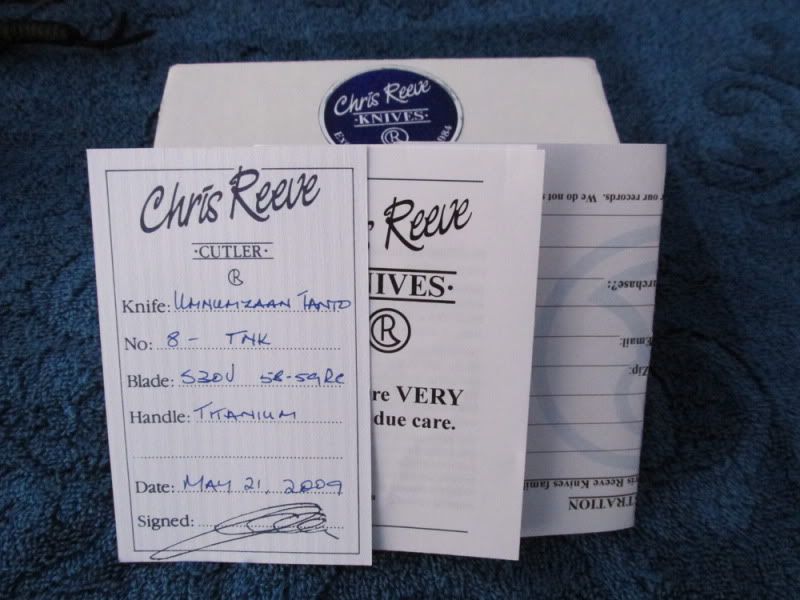 Chris Reeve
·KNIVES·
R
984
Chris Reeve
·CUTLER·
R
Knife: UMNUMZAAN TANTO
No: 8 - TNK
Blade: S30V 58-59RC
Handle: TITANIUM
Date: MAY 21, 2009
Signed:
Reeve
IVES·
R
re VERY
due care.
our records. We do not s
urchase?:
Email:
Zip:
ris Reeve Knives fami
STRATION